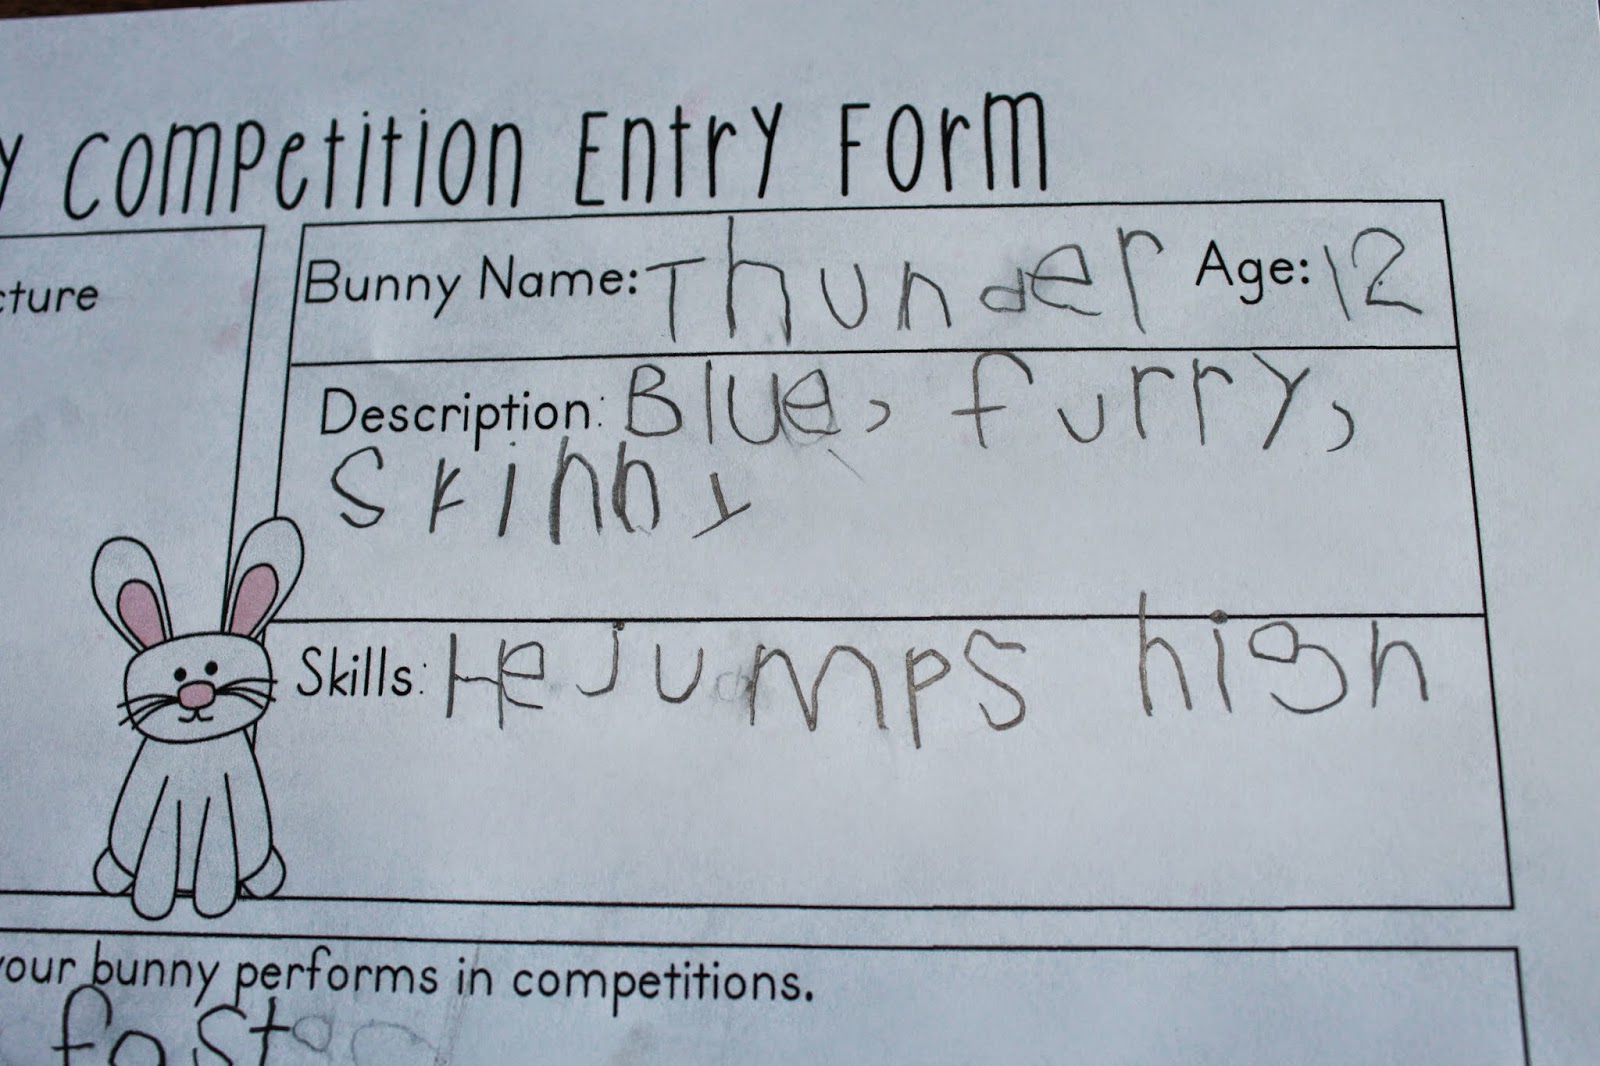 Y Competition Entry Form
cture
Bunny Name: Thunder Age: 12
Description: Blue, furry,
skinny
Skills: He jumps high
your bunny performs in competitions.
fast